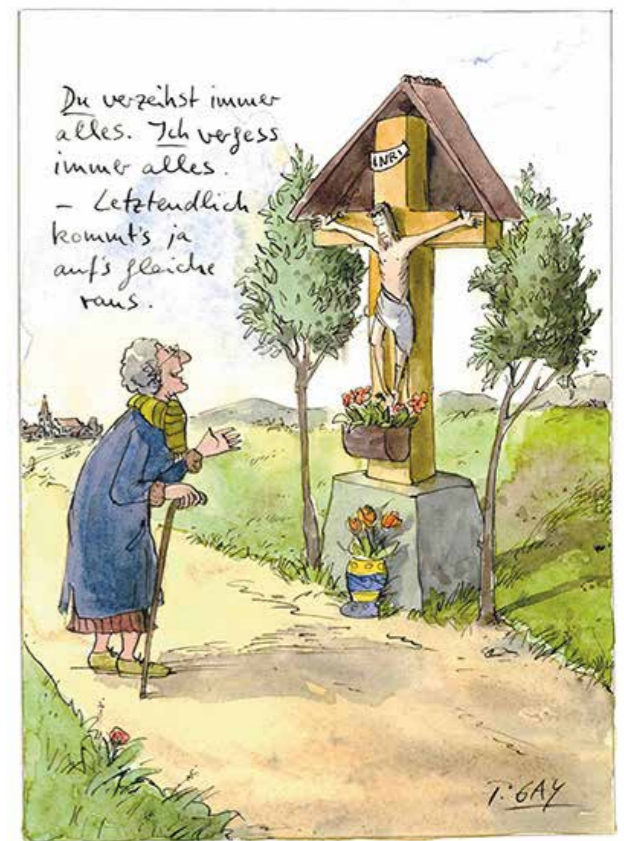 Du verzeihst immer
alles. Ich vergess
immer alles.
– Letztendlich
kommt's ja
auf's gleiche
raus.
INRI
P. GAY